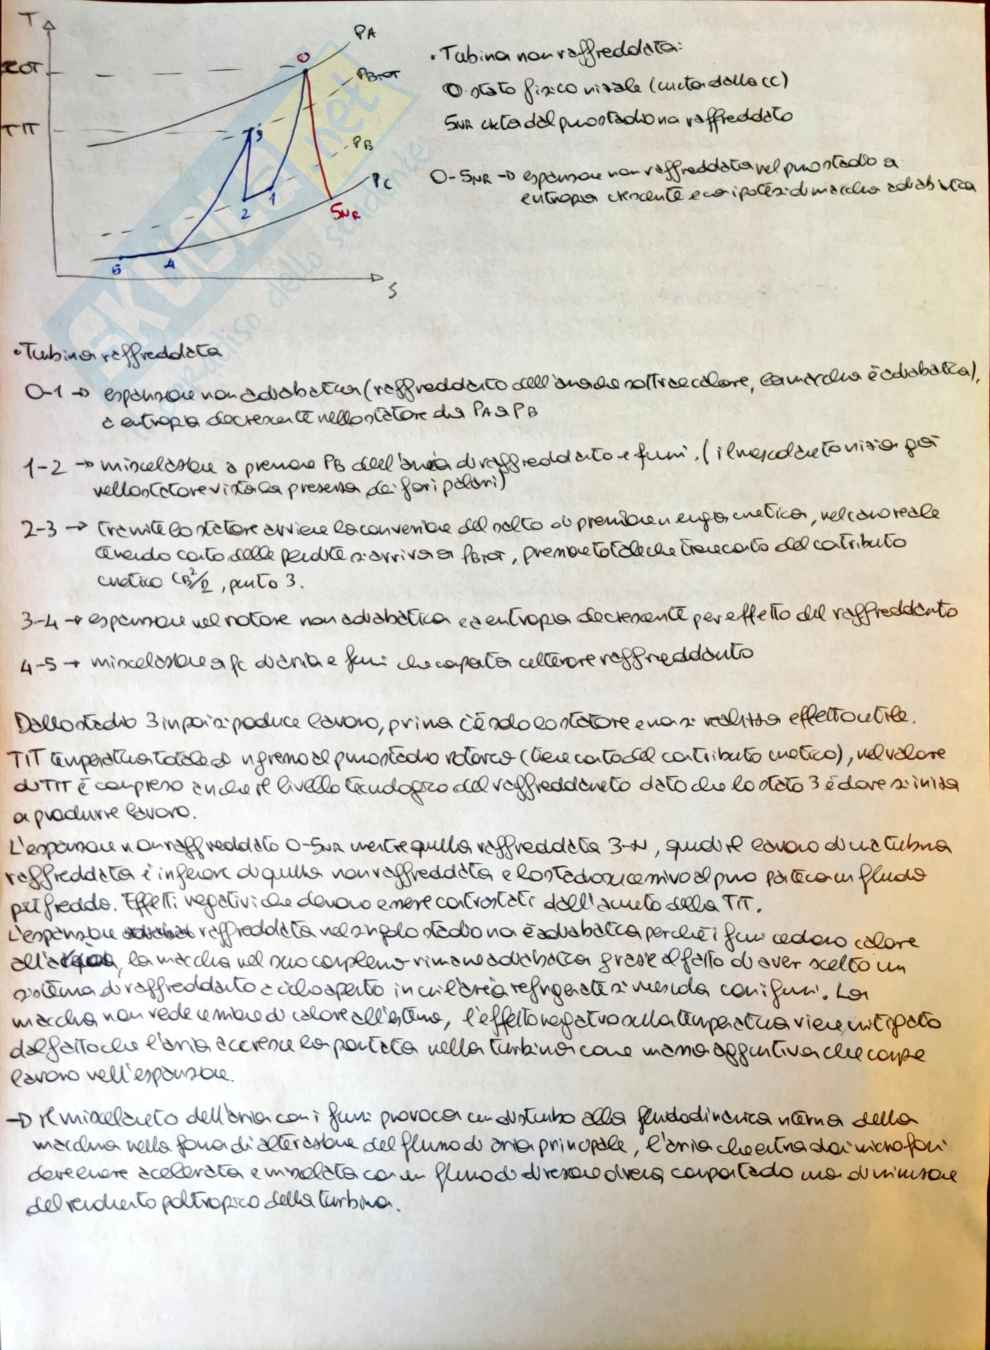 T
PA
PBTOT
PB
PC
COT
TIT
0
3
2
1
5NR
5
4
S
SKUOLA.net
paradiso dello studente
• Tubina non raffreddata:
0 stato fisico iniziale (uscita dalla CC)
5NR uscita dal primo stadio non raffreddato
0-5NR → espansione non raffreddata nel primo stadio a
entropia crescente e con ipotesi di macchina adiabatica
• Tubina raffreddata
0-1 → espansione non adiabatica (raffreddamento dell'aria che sottrae calore, la macchina è adiabatica),
a entropia decrescente nello statore da PA a PB
1-2 → miscelazione a pressione PB dell'aria di raffreddamento e fumi. (il mescolamento inizia già
nello statore vista la presenza dei fori palari)
2-3 → tramite lo statore avviene la conversione del salto di pressione in energia cinetica, nel caso reale
tenendo conto delle perdite si arriva a PBTOT, pressione totale che tiene conto del contributo
cinetico CB²/2, punto 3.
3-4 → espansione nel rotore non adiabatica e a entropia decrescente per effetto del raffreddamento
4-5 → miscelazione a PC di aria e fumi che comporta ulteriore raffreddamento
Dallo stadio 3 in poi si produce lavoro, prima c'è solo lo statore e non si realizza effetto utile.
TIT temperatura totale di ingresso al primo stadio rotorico (tiene conto del contributo cinetico), nel valore
di TIT è compreso anche il livello tecnologico del raffreddamento dato che lo stato 3 è dove si inizia
a produrre lavoro.
L'espansione non raffreddata 0-5NR mentre quella raffreddata 3-4, quindi il lavoro di una turbina
raffreddata è inferiore di quella non raffreddata e lo stadio successivo al primo parte con un fluido
più freddo. Effetti negativi che devono essere contrastati dall'aumento della TIT.
L'espansione raffreddata nel singolo stadio non è adiabatica perché i fumi cedono calore
all'aria, la macchina nel suo complesso rimane adiabatica grazie al fatto di aver scelto un
sistema di raffreddamento a ciclo aperto in cui l'aria refrigerante si mescola con i fumi. La
macchina non vede cessione di calore all'esterno, l'effetto negativo sulla temperatura viene mitigato
dal fatto che l'aria accresce la portata nella turbina come massa aggiuntiva che compie
lavoro nell'espansione.
→ Il miscelamento dell'aria con i fumi provoca un disturbo alla fluidodinamica interna della
macchina nella forma di alterazione del flusso di aria principale, l'aria che entra dai microfori
deve essere accelerata e miscelata con un flusso di direzione diversa comportando una diminuzione
del rendimento politropico della turbina.